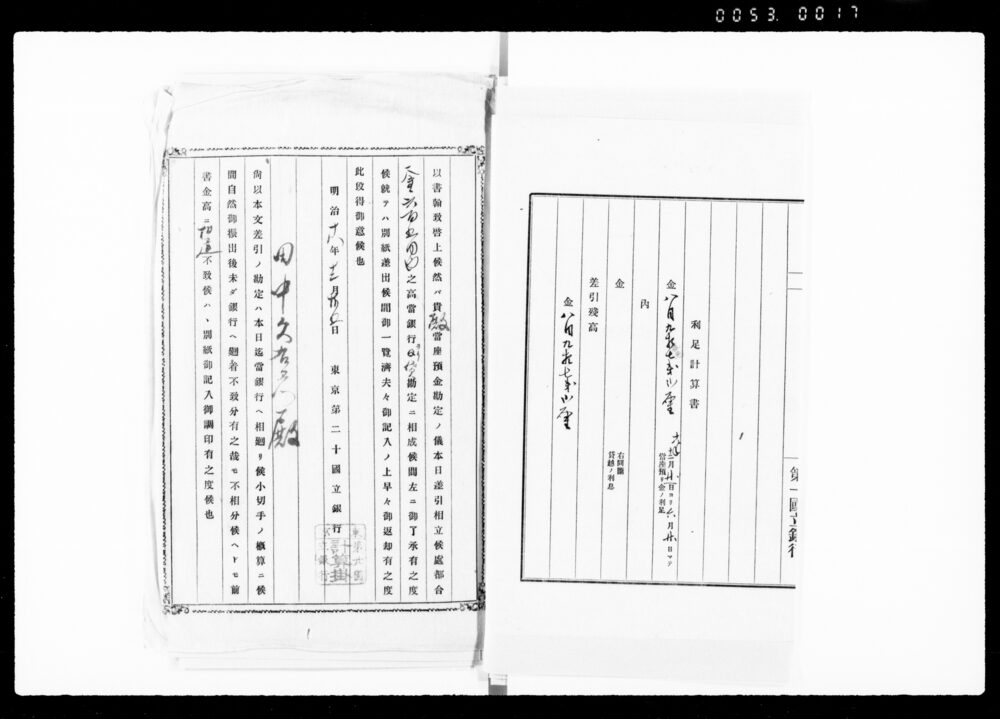 0053. 0017
第一國立銀行
利足計算書
金八円九拾七銭八厘
月廿 日ヨリ六月卅日マテ
當座預リ金ノ利足
内
金
右同斷
貸越ノ利息
差引殘高
金八円九拾七銭八厘
以書翰致啓上候然ハ貴殿當座預金勘定ノ儀本日差引相立候處都合
金六百 之高當銀行 勘定ニ相成候間左ニ御了承有之度
候就テハ別紙差出候間御一覽濟夫々御記入ノ上早々御返却有之度
此段得御意候也
明治十六年十二月 日 東京第二十國立銀行
計算掛
田中久右衛門殿
尚以本文差引ノ勘定ハ本日迄當銀行ヘ相廻リ候小切手ノ概算ニ候
間自然御振出後未ダ銀行ヘ廻着不致分有之哉モ不相分候ヘドモ前
書金高ニ相違不致候ハヽ別紙御記入御調印有之度候也